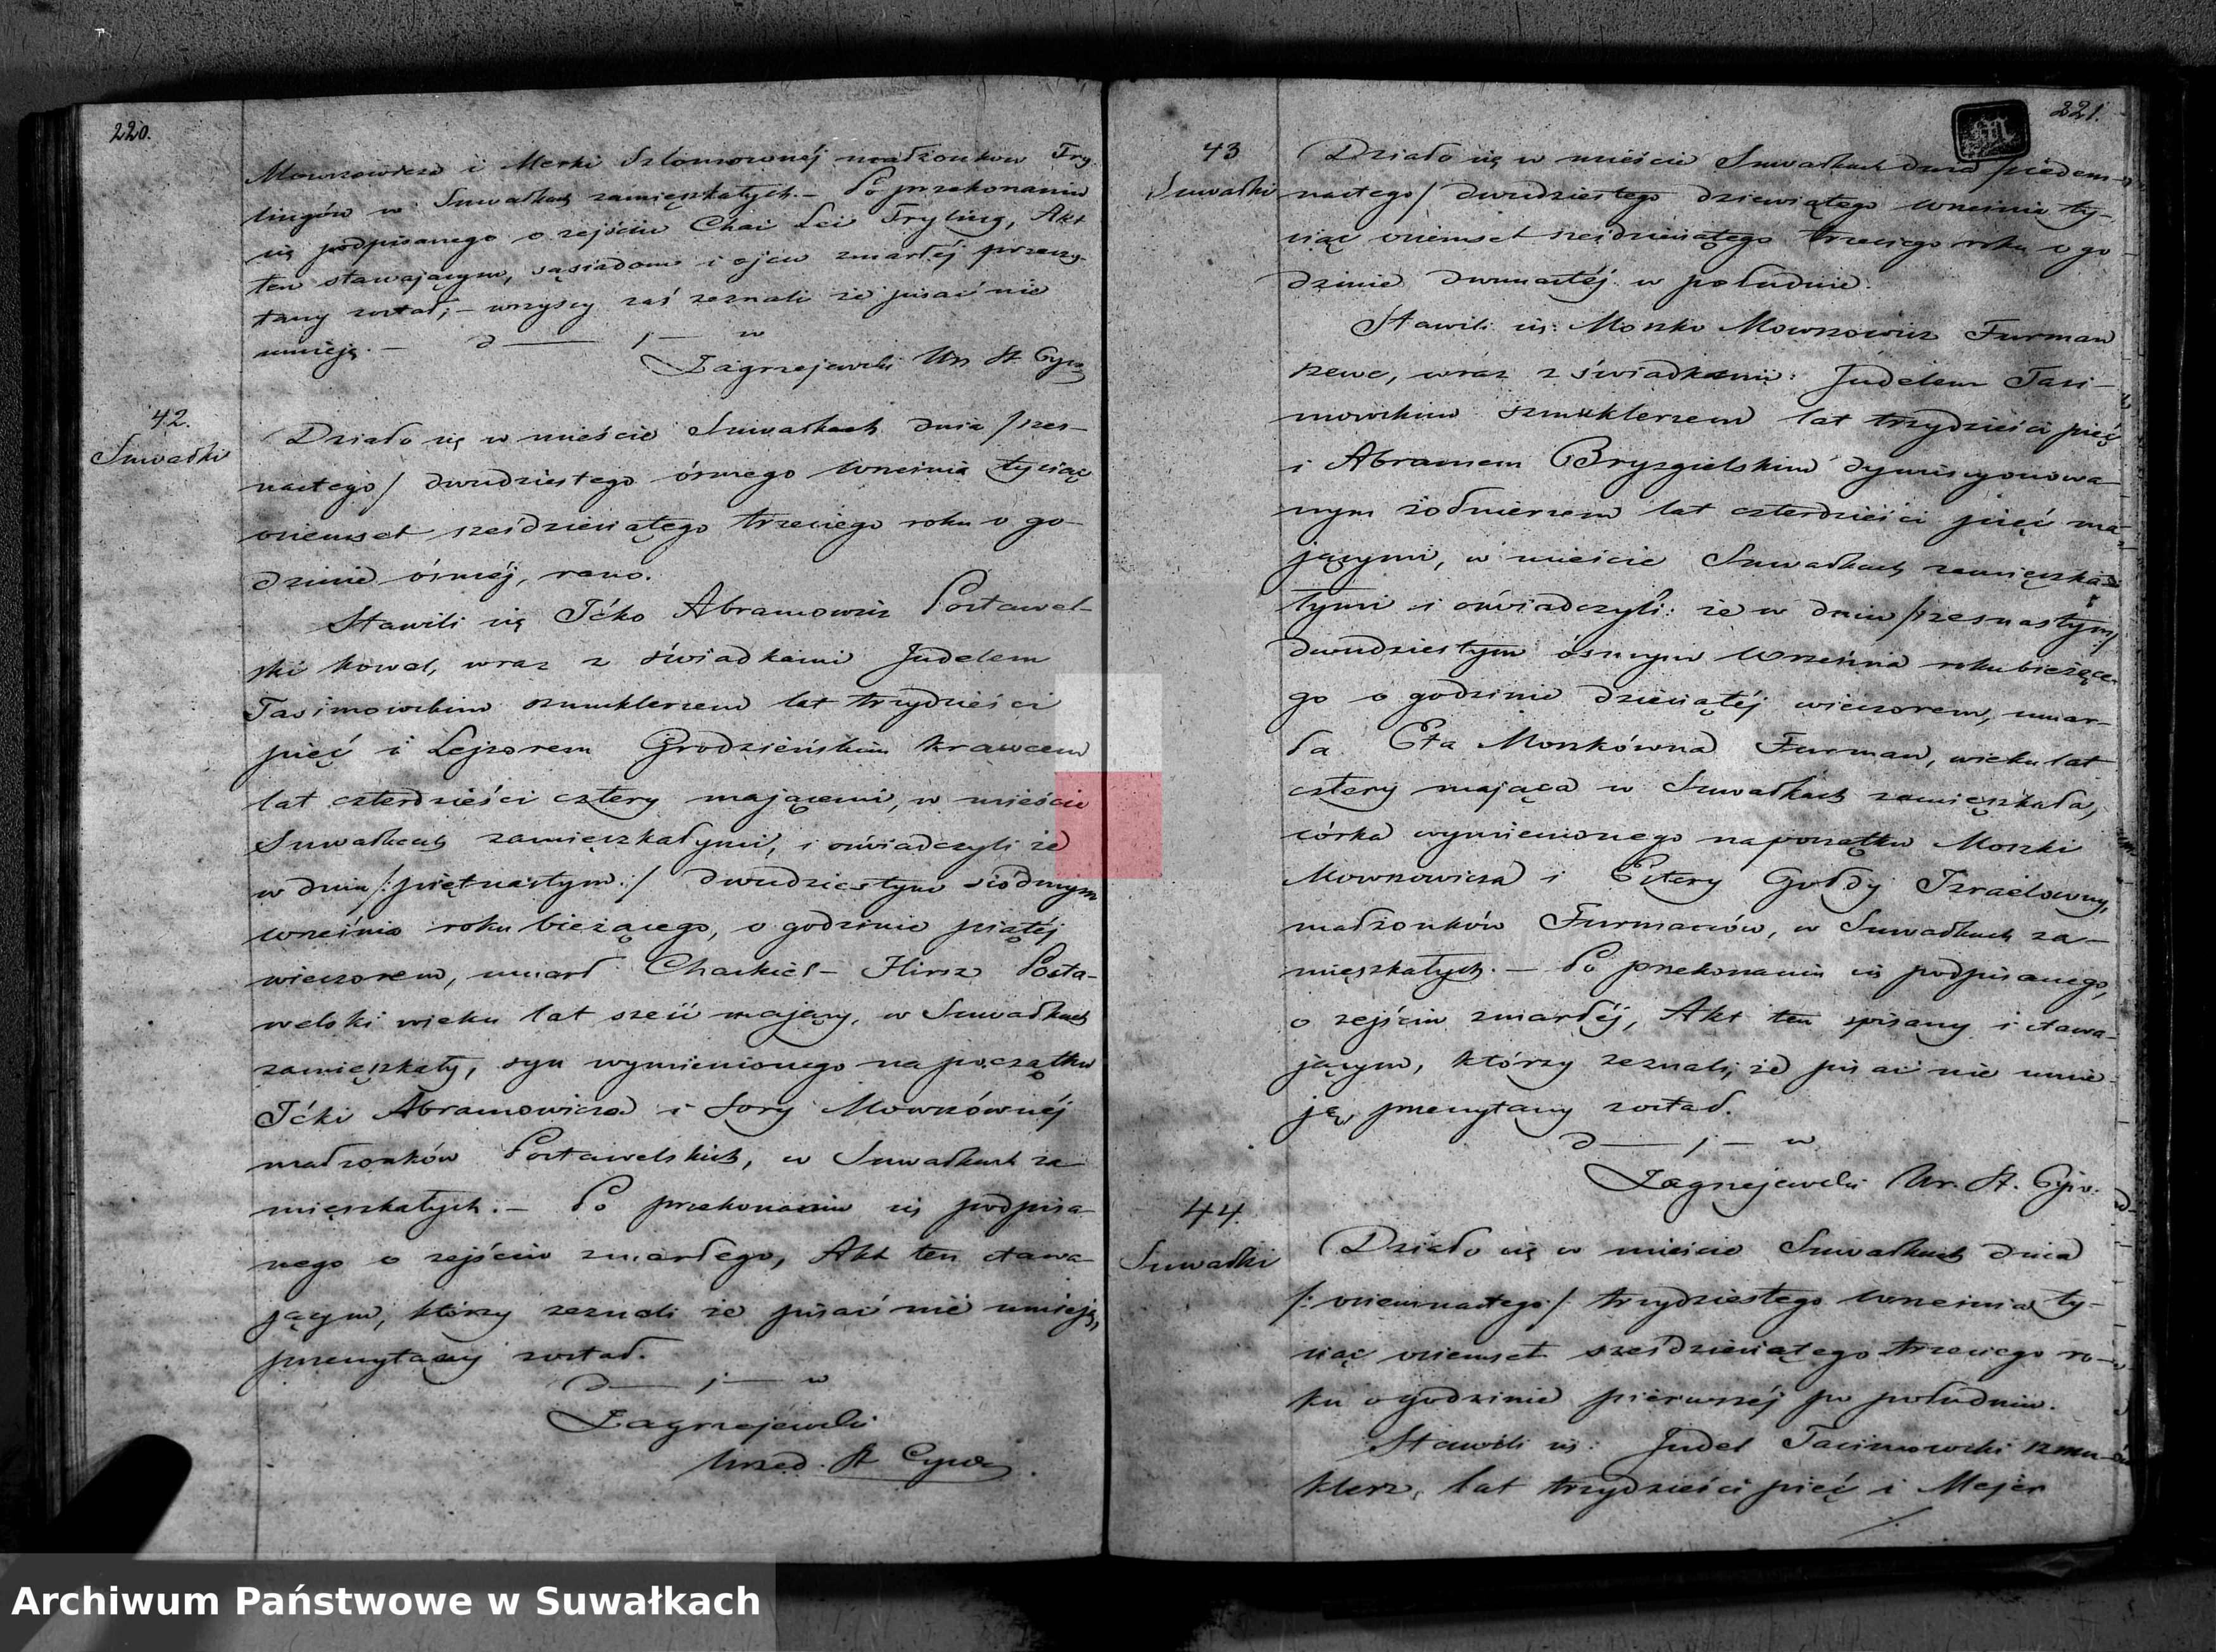 220.
Mowszowicza i Merki Szlomownéj małżonkow Fry-
lingów w Suwałkach zamięszkałych. – Po przekonaniu
się podpisanego o zejściu Chai Lei Fryling, Akt
ten stawającym, sąsiadom i ojcu zmarłéj przeczy-
tany został; – wszyscy zaś zeznali że pisać nie
umieją. –
Zagrzejewski Urz St Cyw
42.
Suwałki
Działo się w mieście Suwałkach dnia /szes-
nastego/ dwudziestego ósmego Września tysiąc
ośmset sześdziesiątego trzeciego roku o go-
dzinie ósméj, rano.
Stawili się Icko Abramowicz Postawel-
ski kowal, wraz z świadkami Judelem
Tasimowskim szmuklerzem lat trzydzieści
pięć i Lejzorem Grodzieńskim krawcem
lat czterdzieści cztery mającemi, w mieście
Suwałkach zamięszkałymi, i oświadczyli że
w dniu /:piętnastym:/ dwudziestym siódmym
Września roku bieżącego, o godzinie piątéj
wieczorem, umarł Chackiel – Hirsz Posta-
welski wieku lat sześć mający, w Suwałkach
zamięszkały, syn wymienionego na początku
Icki Abramowicza i Sory Mowszównéj
małżonków Postawelskich, w Suwałkach za-
mięszkałych. – Po przekonaniu się podpisa-
nego o zejściu zmarłego, Akt ten stawa-
jącym, którzy zeznali że pisać nie umieją,
przeczytany został.
Zagrzejewski
Urzęd. St Cywi
221.
43
Suwałki
Działo się w mieście Suwałkach dnia /siedem-
nastego/ dwudziestego dziewiątego Września ty-
siąc ośmset sześdziesiątego trzeciego roku o go
dzinie dwunastéj w południe.
Stawili się: Moszko Mowszowicz Furman
szewc, wraz z świadkami: Judelem Tasi-
mowskim szmuklerzem lat trzydzieści pięć
i Abramem Bryzgielskim dymisyonowa-
nym żołnierzem lat czterdzieści pięć ma-
jącymi, w mieście Suwałkach zamięszka-
łymi i oświadczyli: że w dniu /szesnastym/
dwudziestym ósmym Września roku bieżące-
go o godzinie dziesiątéj wieczorem, umar-
ła Eta Moszkówna Furman, wieku lat
cztery mająca w Suwałkach zamięszkała,
córka wymienionego na początku Moszki
Mowszowicza i Estery Gołdy Izraelowny,
małżonków Furmanów, w Suwałkach za-
mięszkałych. – Po przekonaniu się podpisanego,
o zejściu zmarłéj, Akt ten spisany i stawa-
jącym, którzy zeznali, że pisać nie umie-
ją, przeczytany został.
Zagrzejewski Ur. St. Cyw.
44.
Suwałki
Działo się w mieście Suwałkach dnia
/:osiemnastego/: trzydziestego Września ty-
siąc ośmset sześdziesiątego trzeciego ro-
ku o godzinie pierwszéj po południu.
Stawili się: Judel Tasimowski szmu-
klerz, lat trzydzieści pięć i Mejer
Archiwum Państwowe w Suwałkach